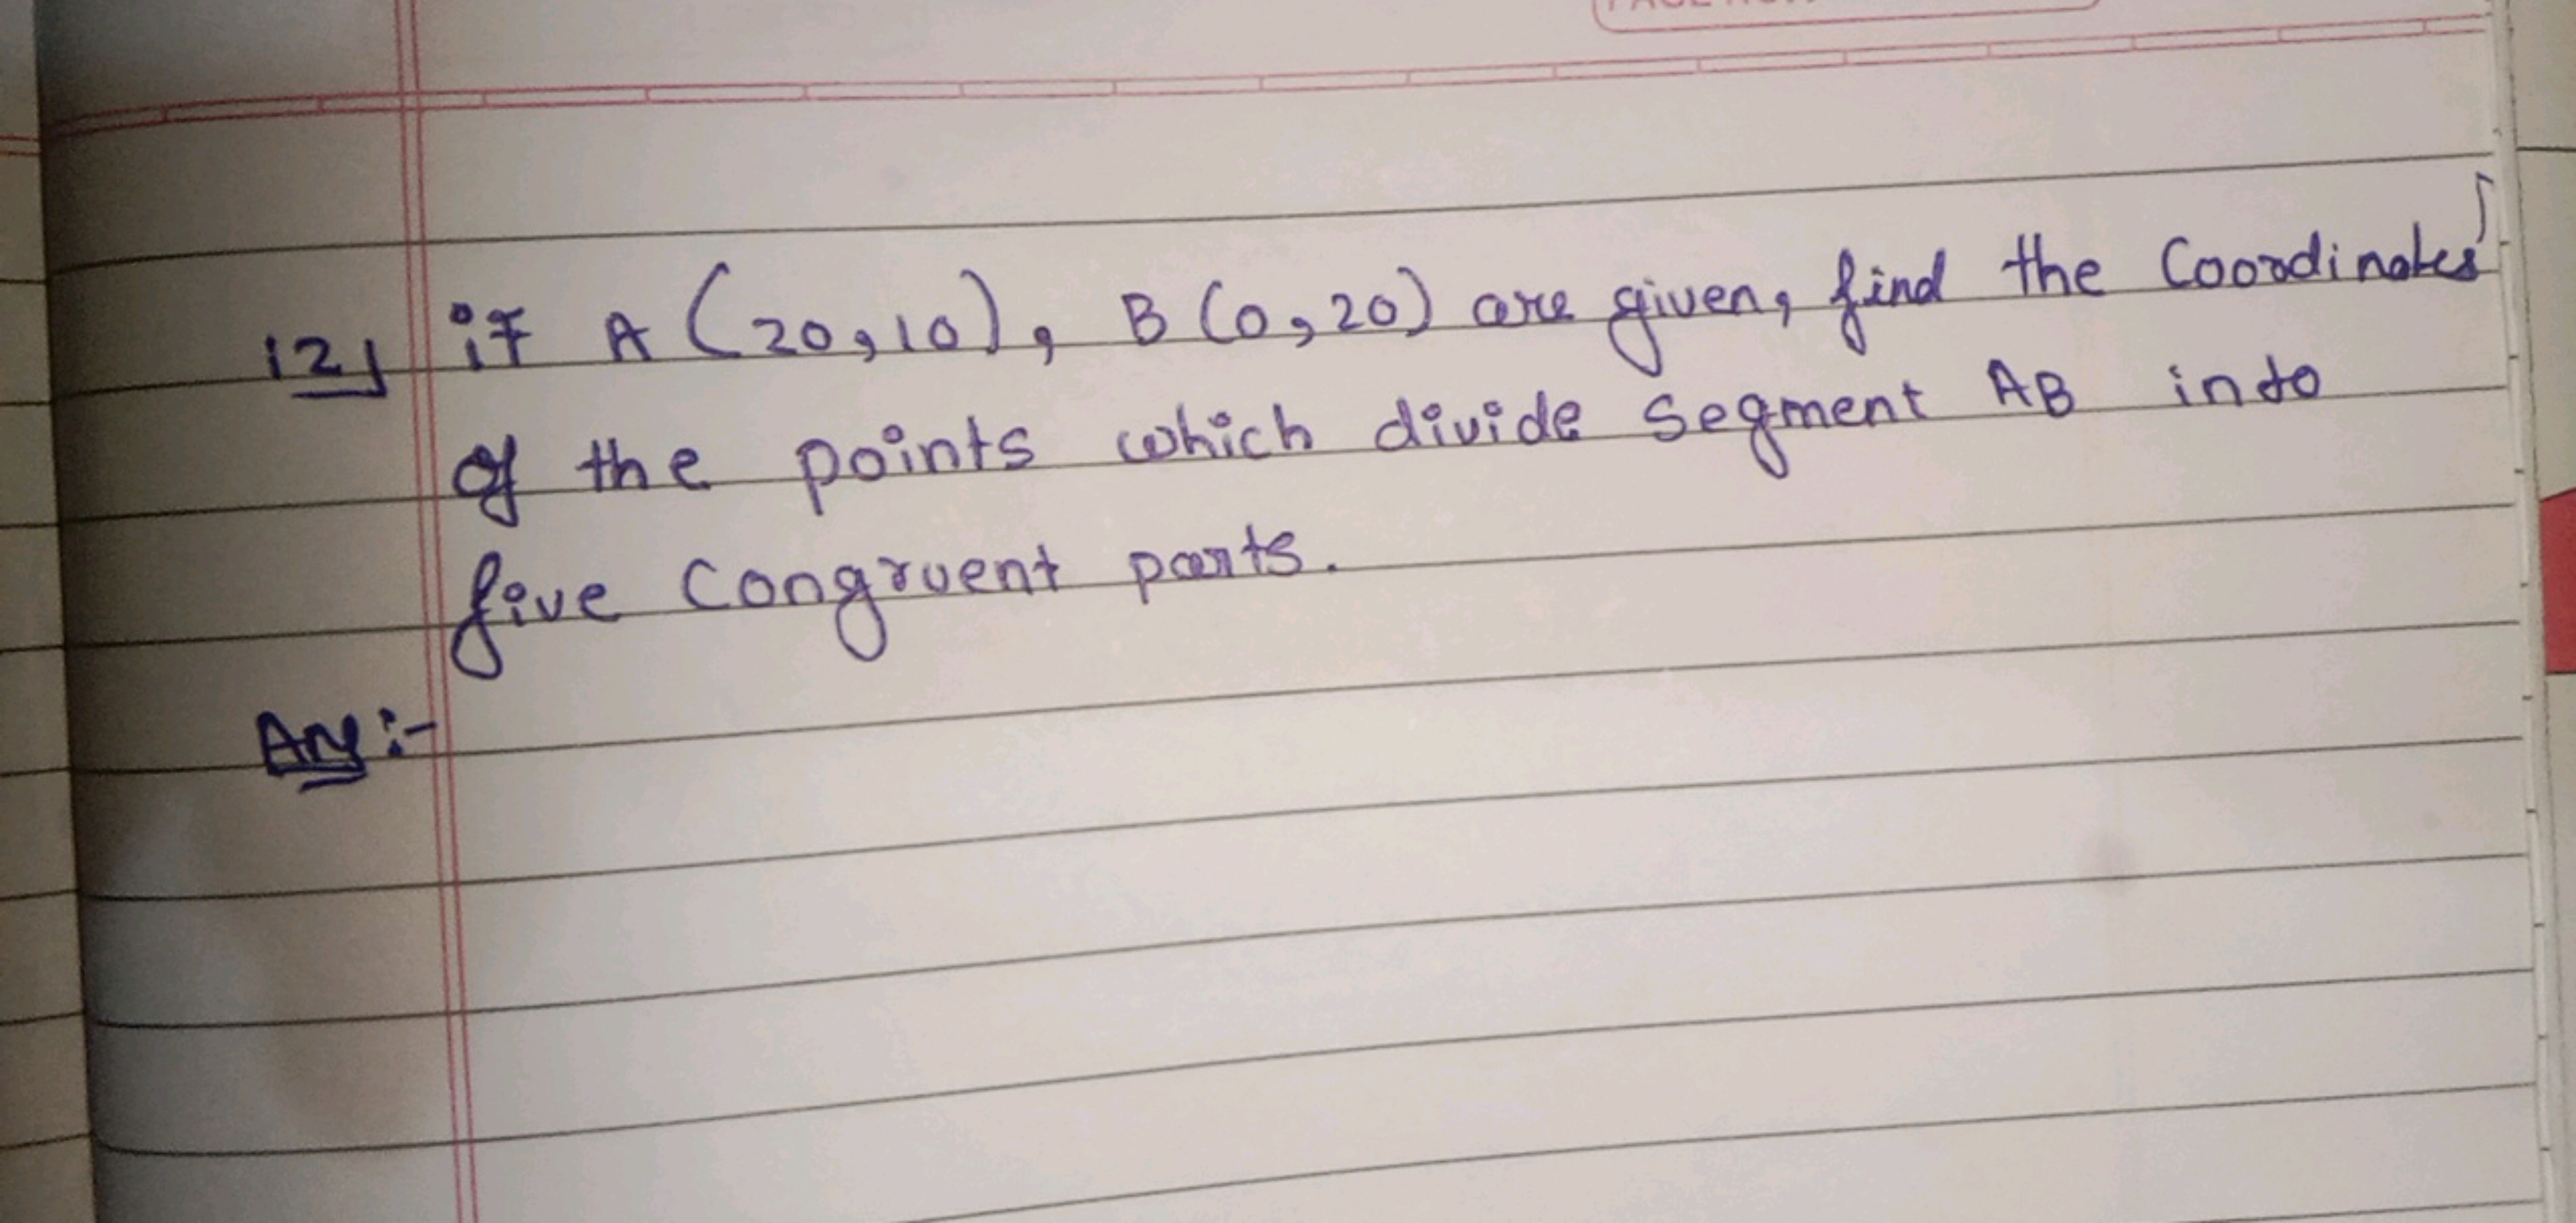 12) if A (20,10), B (0,20) are given, find the Coordinates
of the points which divide segment AB into
five Congruent parts.
Ans:-